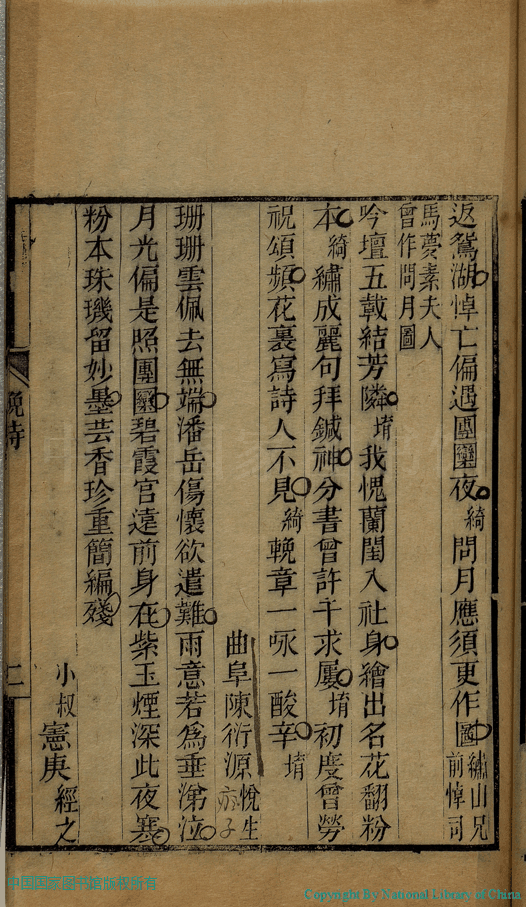 返鴛湖悼亡偏遇團圞夜綺問月應須更作圖繡山兄前悼司
馬夢素夫人曾作問月圖
吟壇五載結芳隣堉我愧蘭閨入社身繪出名花翻粉
本綺繡成麗句拜鍼神分書曾許千求屢堉初度曾勞
祝頌頻花裏寫詩人不見綺輓章一咏一酸辛堉
曲阜陳衍源悅生
珊珊雲佩去無端潘岳傷懷欲遣難雨意若為垂涕泣
月光偏是照團圞碧霞宮遠前身在紫玉煙深此夜寒
粉本珠璣留妙墨芸香珍重簡編殘
小叔憲庚經之
輓詩
二
中国国家图书馆版权所有
Copyright By National Library of China